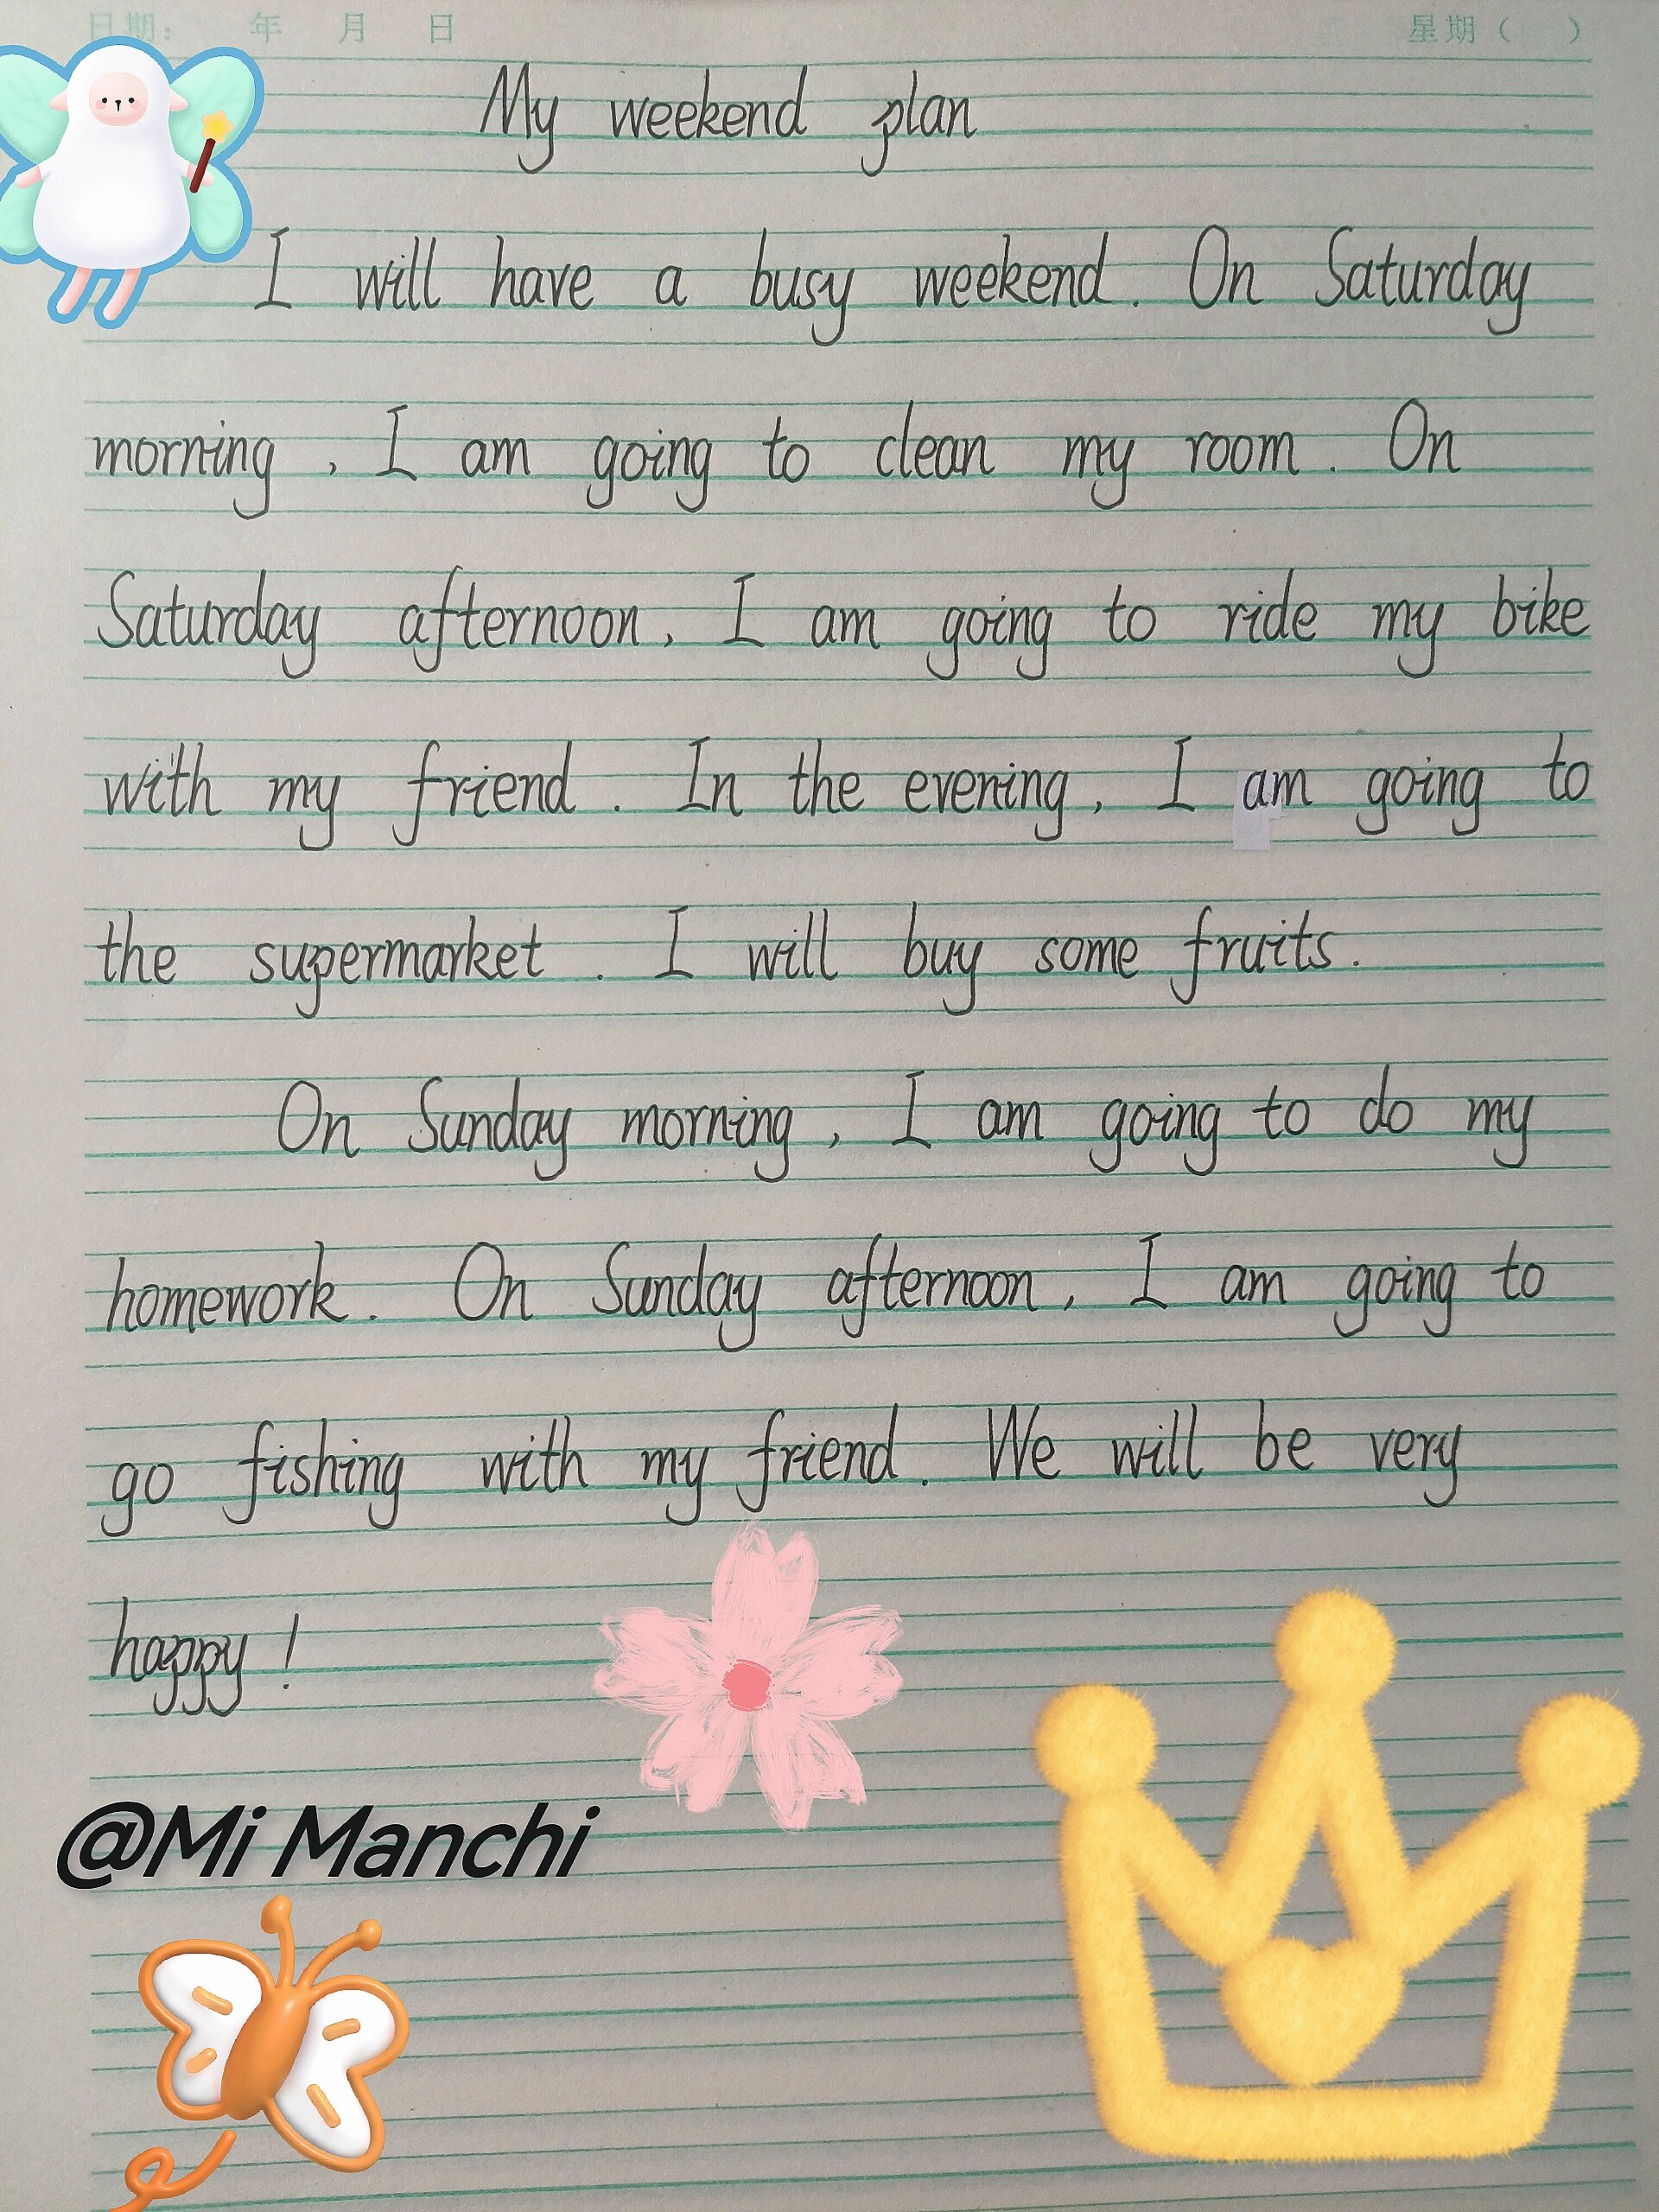 日期: 年 月 日 星期( )
My weekend plan
I will have a busy weekend. On Saturday
morning, I am going to clean my room. On
Saturday afternoon, I am going to ride my bike
with my friend. In the evening, I am going to
the supermarket. I will buy some fruits.
On Sunday morning, I am going to do my
homework. On Sunday afternoon, I am going to
go fishing with my friend. We will be very
happy!
@Mi Manchi